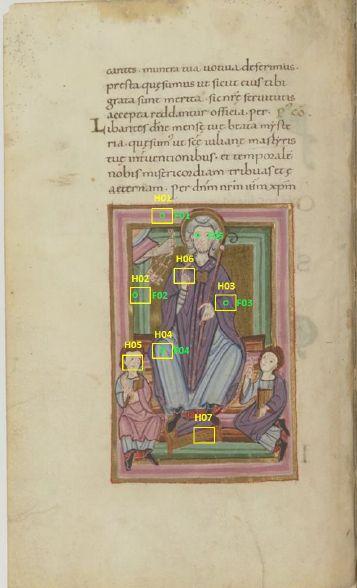 cantes. munera tua uotiua deferimus.
presta quęsumus ut sicut eius tibi
grata sunt merita. sic nrę seruitutis
accepta reddantur officia. per.
Libantes dne mensę tuę beata myste
ria. quęsumus ut scī iuliani martyris
tui interuentionibus. et temporalē
nobis misericordiam tribuas et
aeternam. per dnm nrm ihm xpm
H01 F01
F05
H06
H02 F02
H03 F03
H04 F04
H05
H07